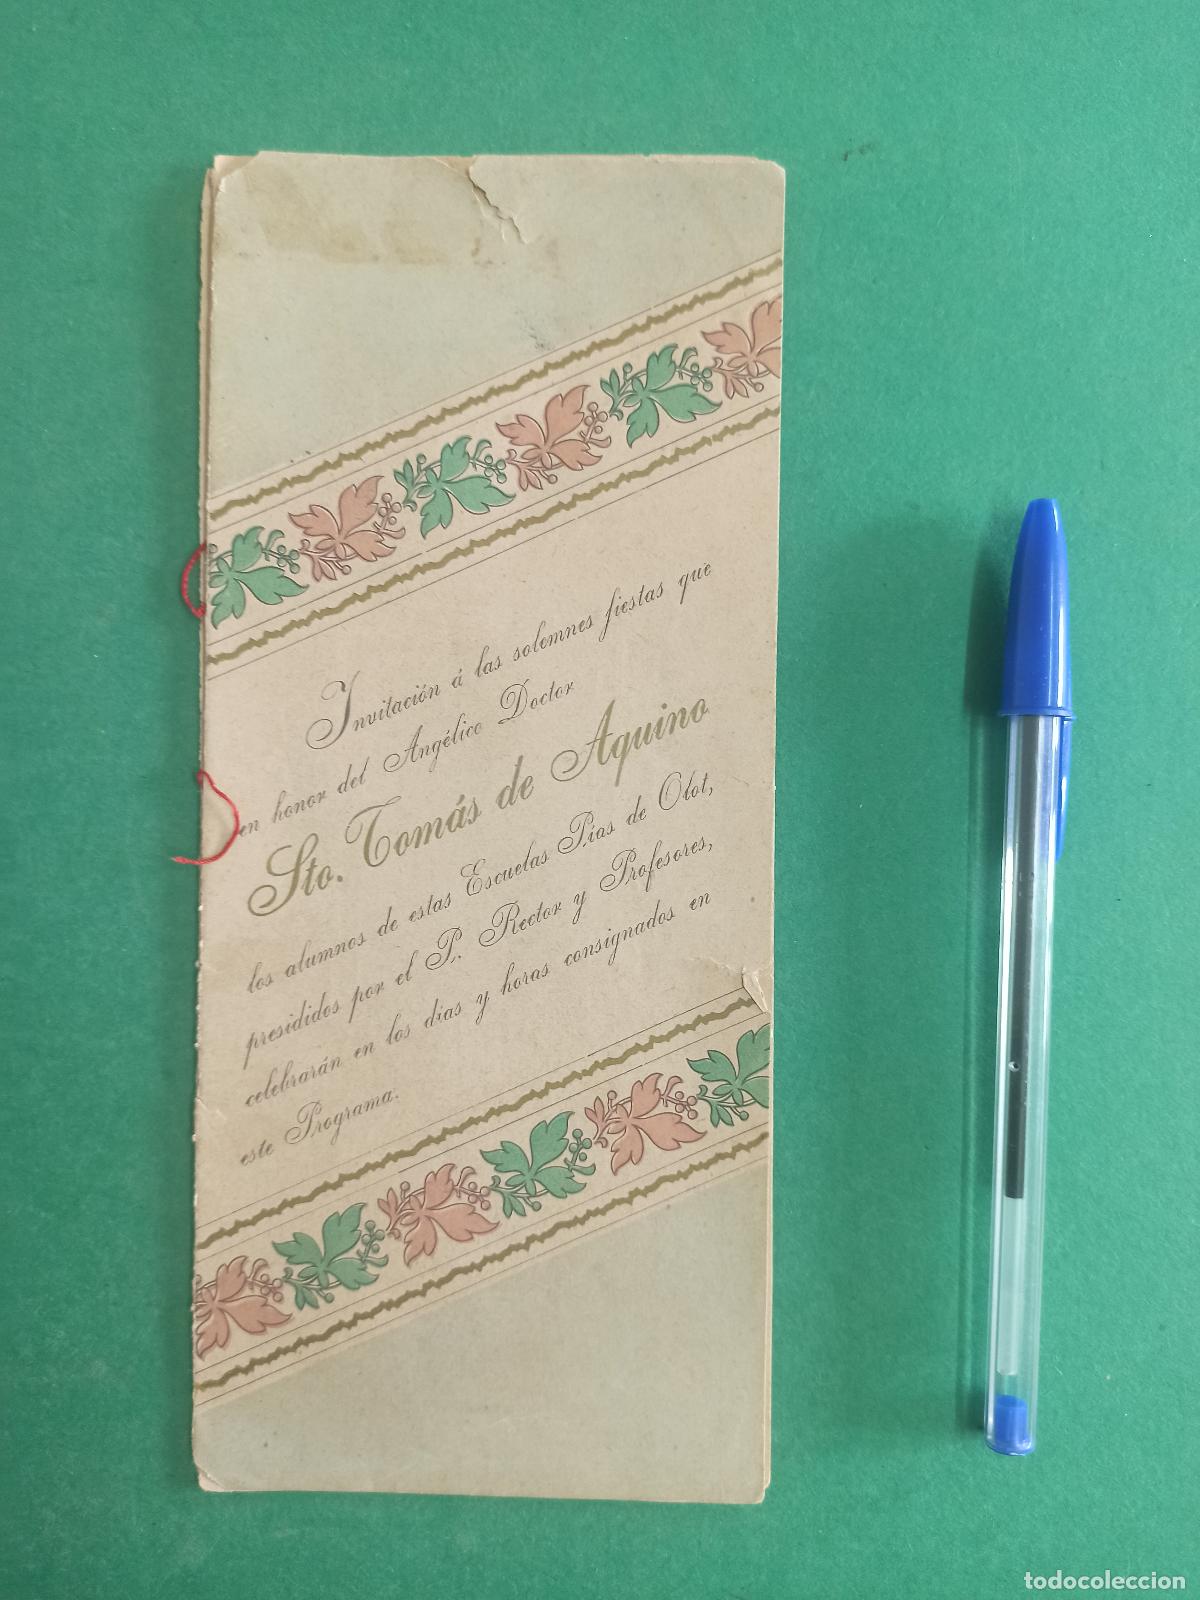 Invitación á las solemnes fiestas que
en honor del Angélico Doctor
Sto. Tomás de Aquino
los alumnos de estas Escuelas Pías de Olot,
presididos por el P. Rector y Profesores,
celebrarán en los dias y horas consignados en
este Programa.
todocoleccion